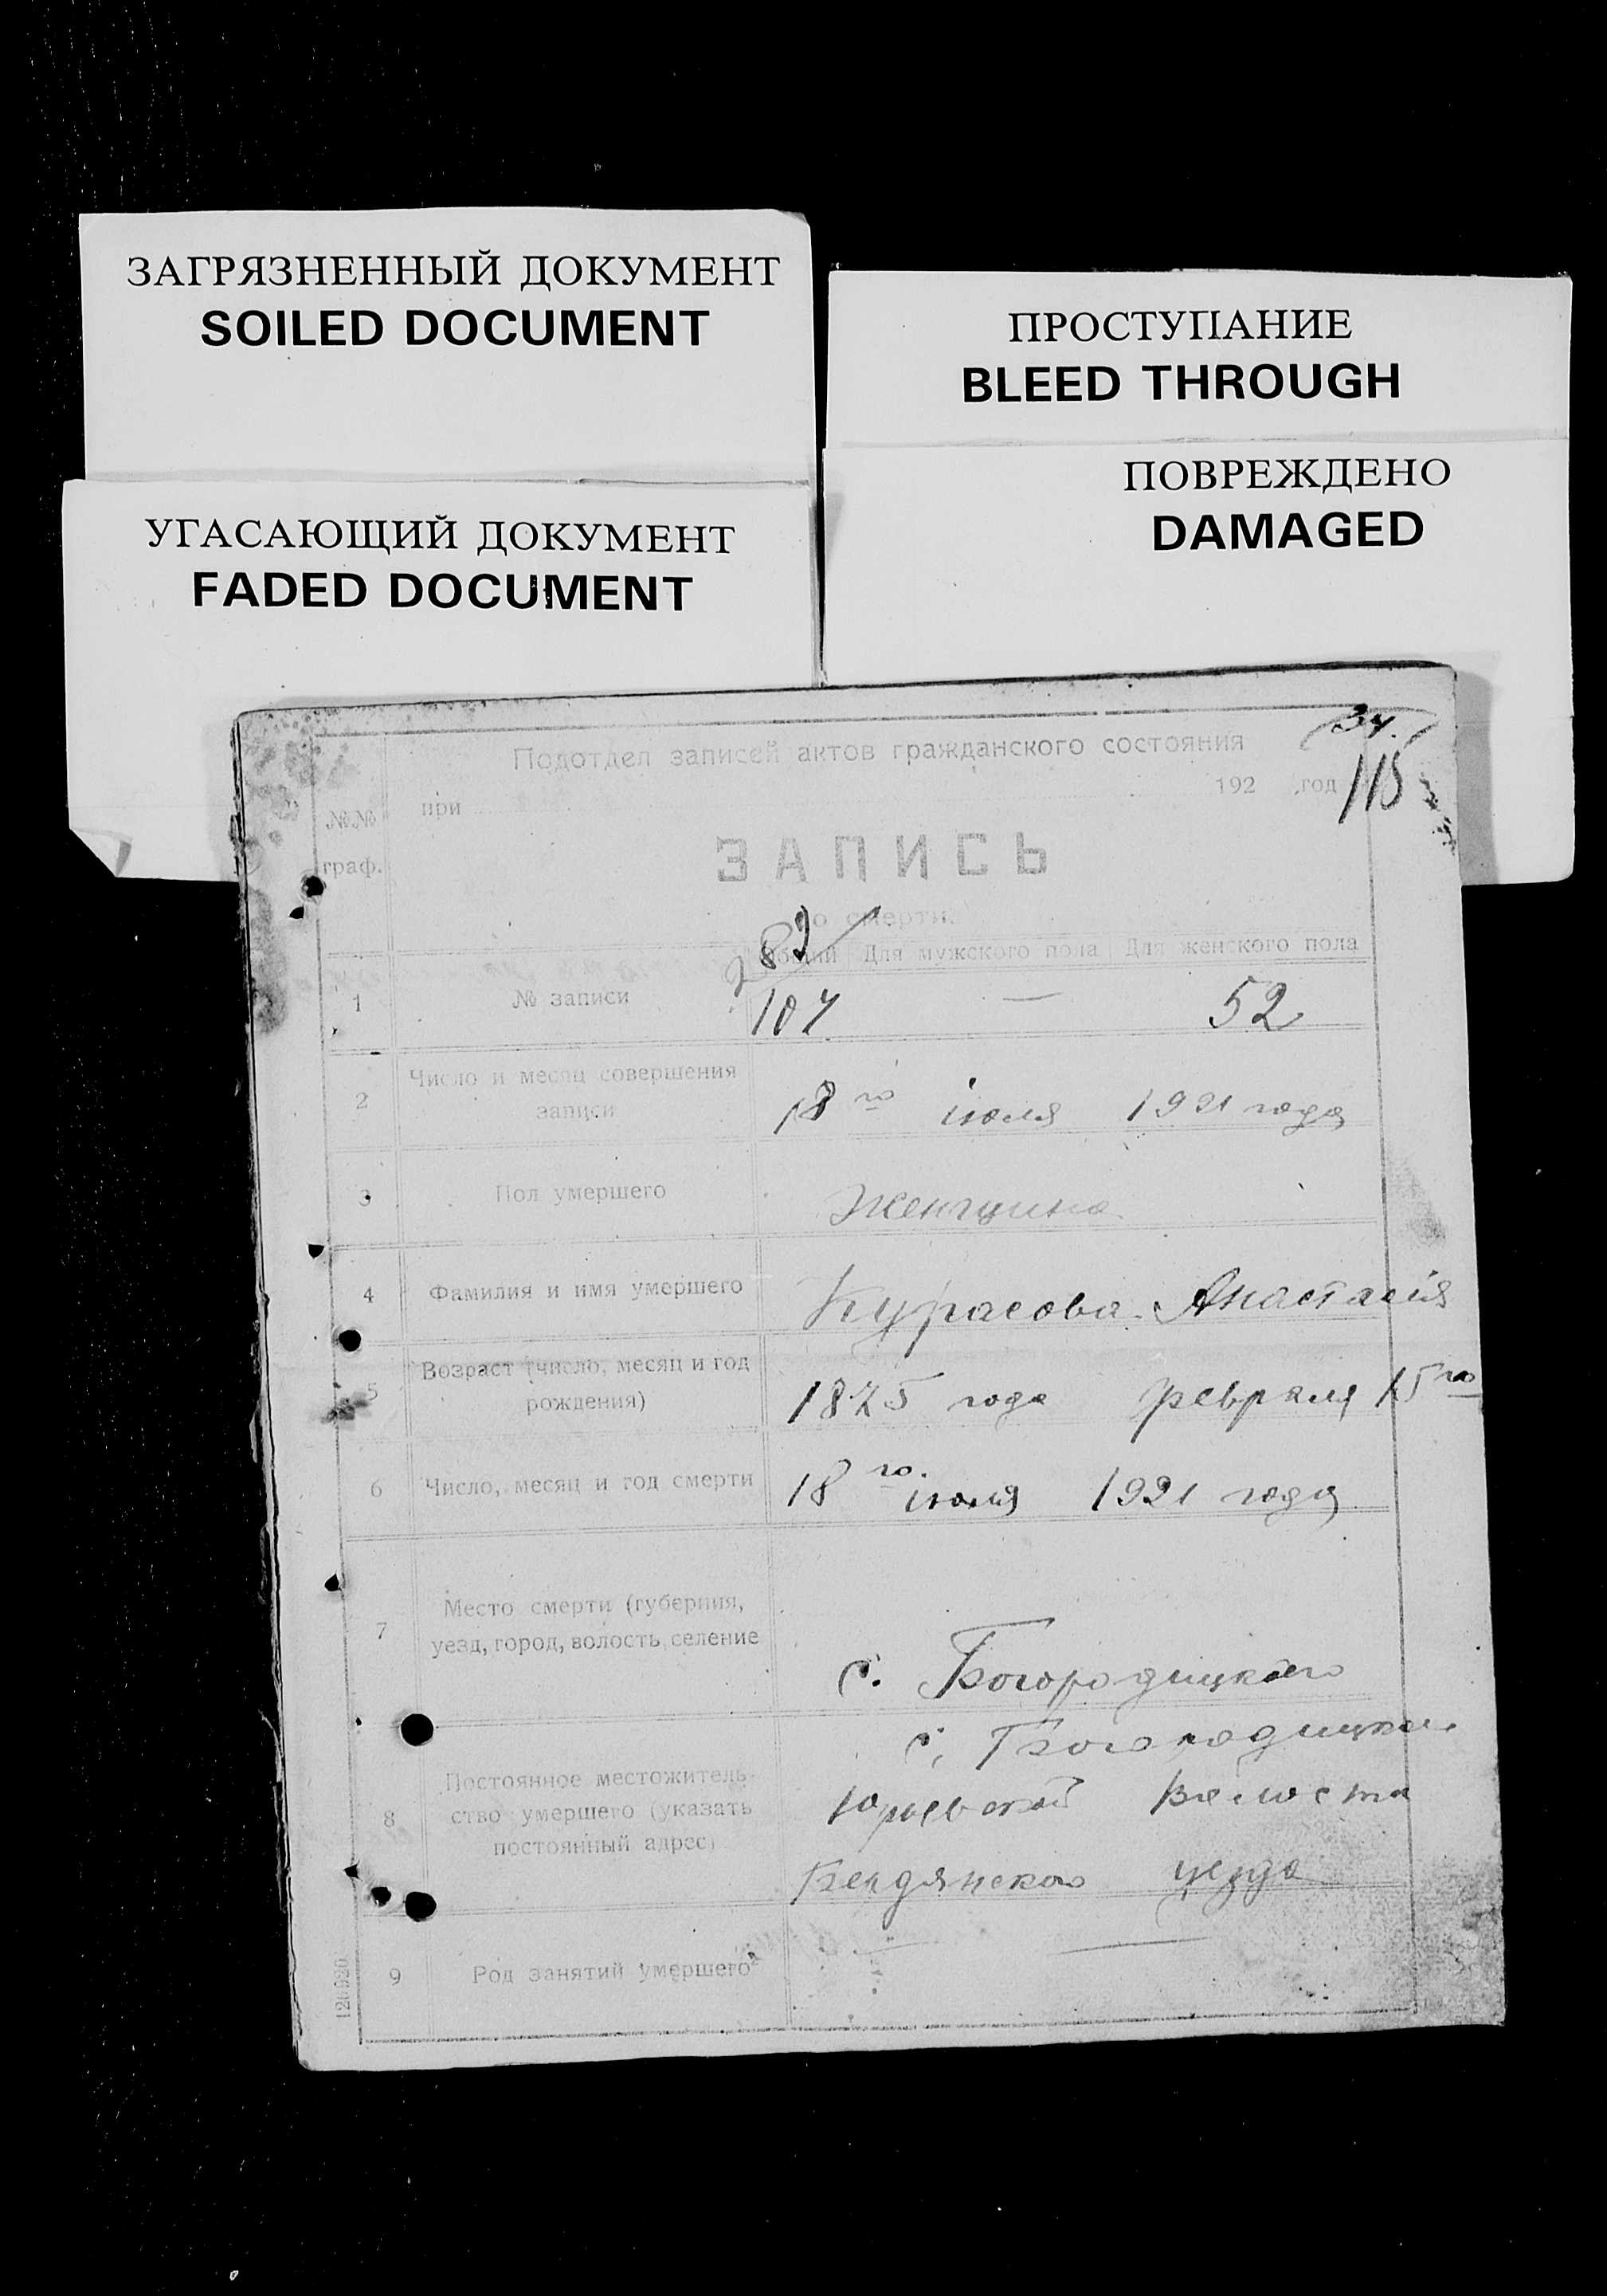 ЗАГРЯЗНЕННЫЙ ДОКУМЕНТ
SOILED DOCUMENT
ПРОСТУПАНИЕ
BLEED THROUGH
ПОВРЕЖДЕНО
DAMAGED
УГАСАЮЩИЙ ДОКУМЕНТ
FADED DOCUMENT
34.
115
Подотдел записей актов гражданского состояния
при 192 год
№№ граф.
ЗАПИСЬ
о смерти.
282
Общий Для мужского пола Для женского пола
1 № записи 107 — 52
2 Число и месяц совершения
записи 18го июля 1921 года
3 Пол умершего Женщина
4 Фамилия и имя умершего Курасова Анастасія
5 Возраст (число, месяц и год
рождения) 1875 года февраля 15го
6 Число, месяц и год смерти 18го июля 1921 года
7 Место смерти (губерния,
уезд, город, волость, селение с. Богородицкого
с. Богородицкого
8 Постоянное местожитель-
ство умершего (указать Юрьевской волости
постоянный адрес)
Бердянского уезда
9 Род занятий умершего —